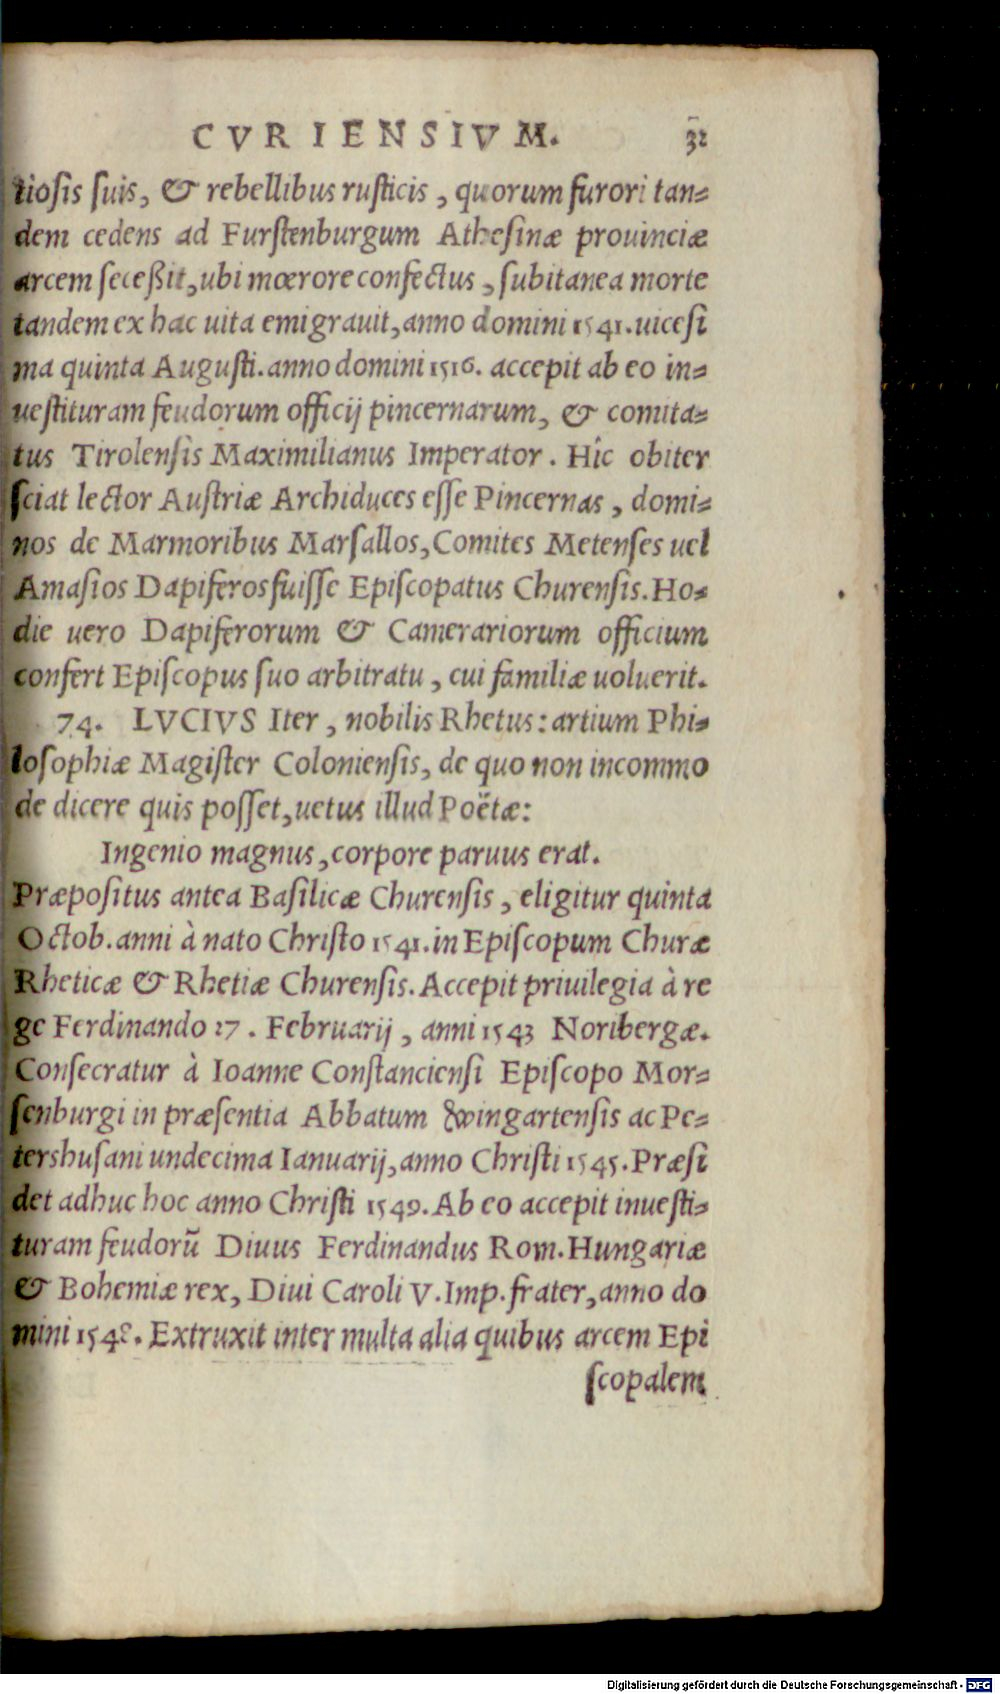 CVRIENSIVM. 32
tiosis suis, & rebellibus rusticis, quorum furori tan-
dem cedens ad Furstenburgum Athesinæ prouinciæ
arcem seceßit, ubi mœrore confectus, subitanea morte
tandem ex hac uita emigrauit, anno domini 1541. uicesi
ma quinta Augusti. anno domini 1516. accepit ab eo in-
uestituram feudorum officij pincernarum, & comita-
tus Tirolensis Maximilianus Imperator. Hîc obiter
sciat lector Austriæ Archiduces esse Pincernas, domi-
nos de Marmoribus Marsallos, Comites Metenses uel
Amasios Dapiferos fuisse Episcopatus Churensis. Ho-
die uero Dapiferorum & Camerariorum officium
confert Episcopus suo arbitratu, cui familiæ uoluerit.
74. LVCIVS Iter, nobilis Rhetus: artium Phi-
losophiæ Magister Coloniensis, de quo non incommo
de dicere quis posset, uetus illud Poëtæ:
Ingenio magnus, corpore paruus erat.
Præpositus antea Basilicæ Churensis, eligitur quinta
Octob. anni à nato Christo 1541. in Episcopum Churæ
Rheticæ & Rhetiæ Churensis. Accepit priuilegia à re
ge Ferdinando 27. Februarij, anni 1543 Noribergæ.
Consecratur à Ioanne Constanciensi Episcopo Mor-
senburgi in præsentia Abbatum Wingartensis ac Pe-
tershusani undecima Ianuarij, anno Christi 1545. Præsi
det adhuc hoc anno Christi 1549. Ab eo accepit inuesti-
turam feudorū Diuus Ferdinandus Rom. Hungariæ
& Bohemiæ rex, Diui Caroli V. Imp. frater, anno do
mini 1548. Extruxit inter multa alia quibus arcem Epi
scopalem
Digitalisierung gefördert durch die Deutsche Forschungsgemeinschaft - DFG